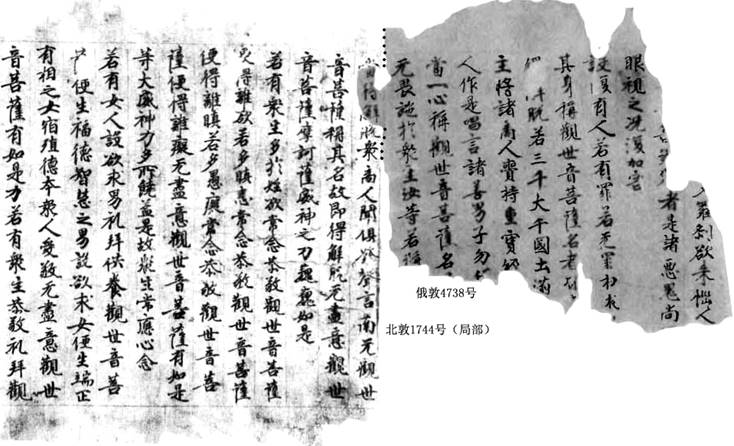 羅刹欲来惱人
者是諸惡鬼尚
眼視之况復加害
設復有人若有罪若无罪杻
其身稱觀世音菩薩名者
脱若三千大千國土滿
主将諸商人賫持重寶經
人作是唱言諸善男子勿
當一心稱觀世音菩薩名
无畏施於衆生汝等若稱
當得解脱衆商人聞俱發聲言南无觀世
音菩薩稱其名故即得解脱无盡意觀世
音菩薩摩訶薩威神之力巍巍如是
若有衆生多於婬欲常念恭敬觀世音菩薩
便得離欲若多瞋恚常念恭敬觀世音菩薩
便得離瞋若多愚癡常念恭敬觀世音菩
薩便得離癡无盡意觀世音菩薩有如是
等大威神力多所饒益是故衆生常應心念
若有女人設欲求男礼拜供養觀世音菩
便生福德智慧之男設欲求女便生端正
有相之女宿殖德本衆人愛敬无盡意觀世
音菩薩有如是力若有衆生恭敬礼拜觀
俄敦4738号
北敦1744号（局部）